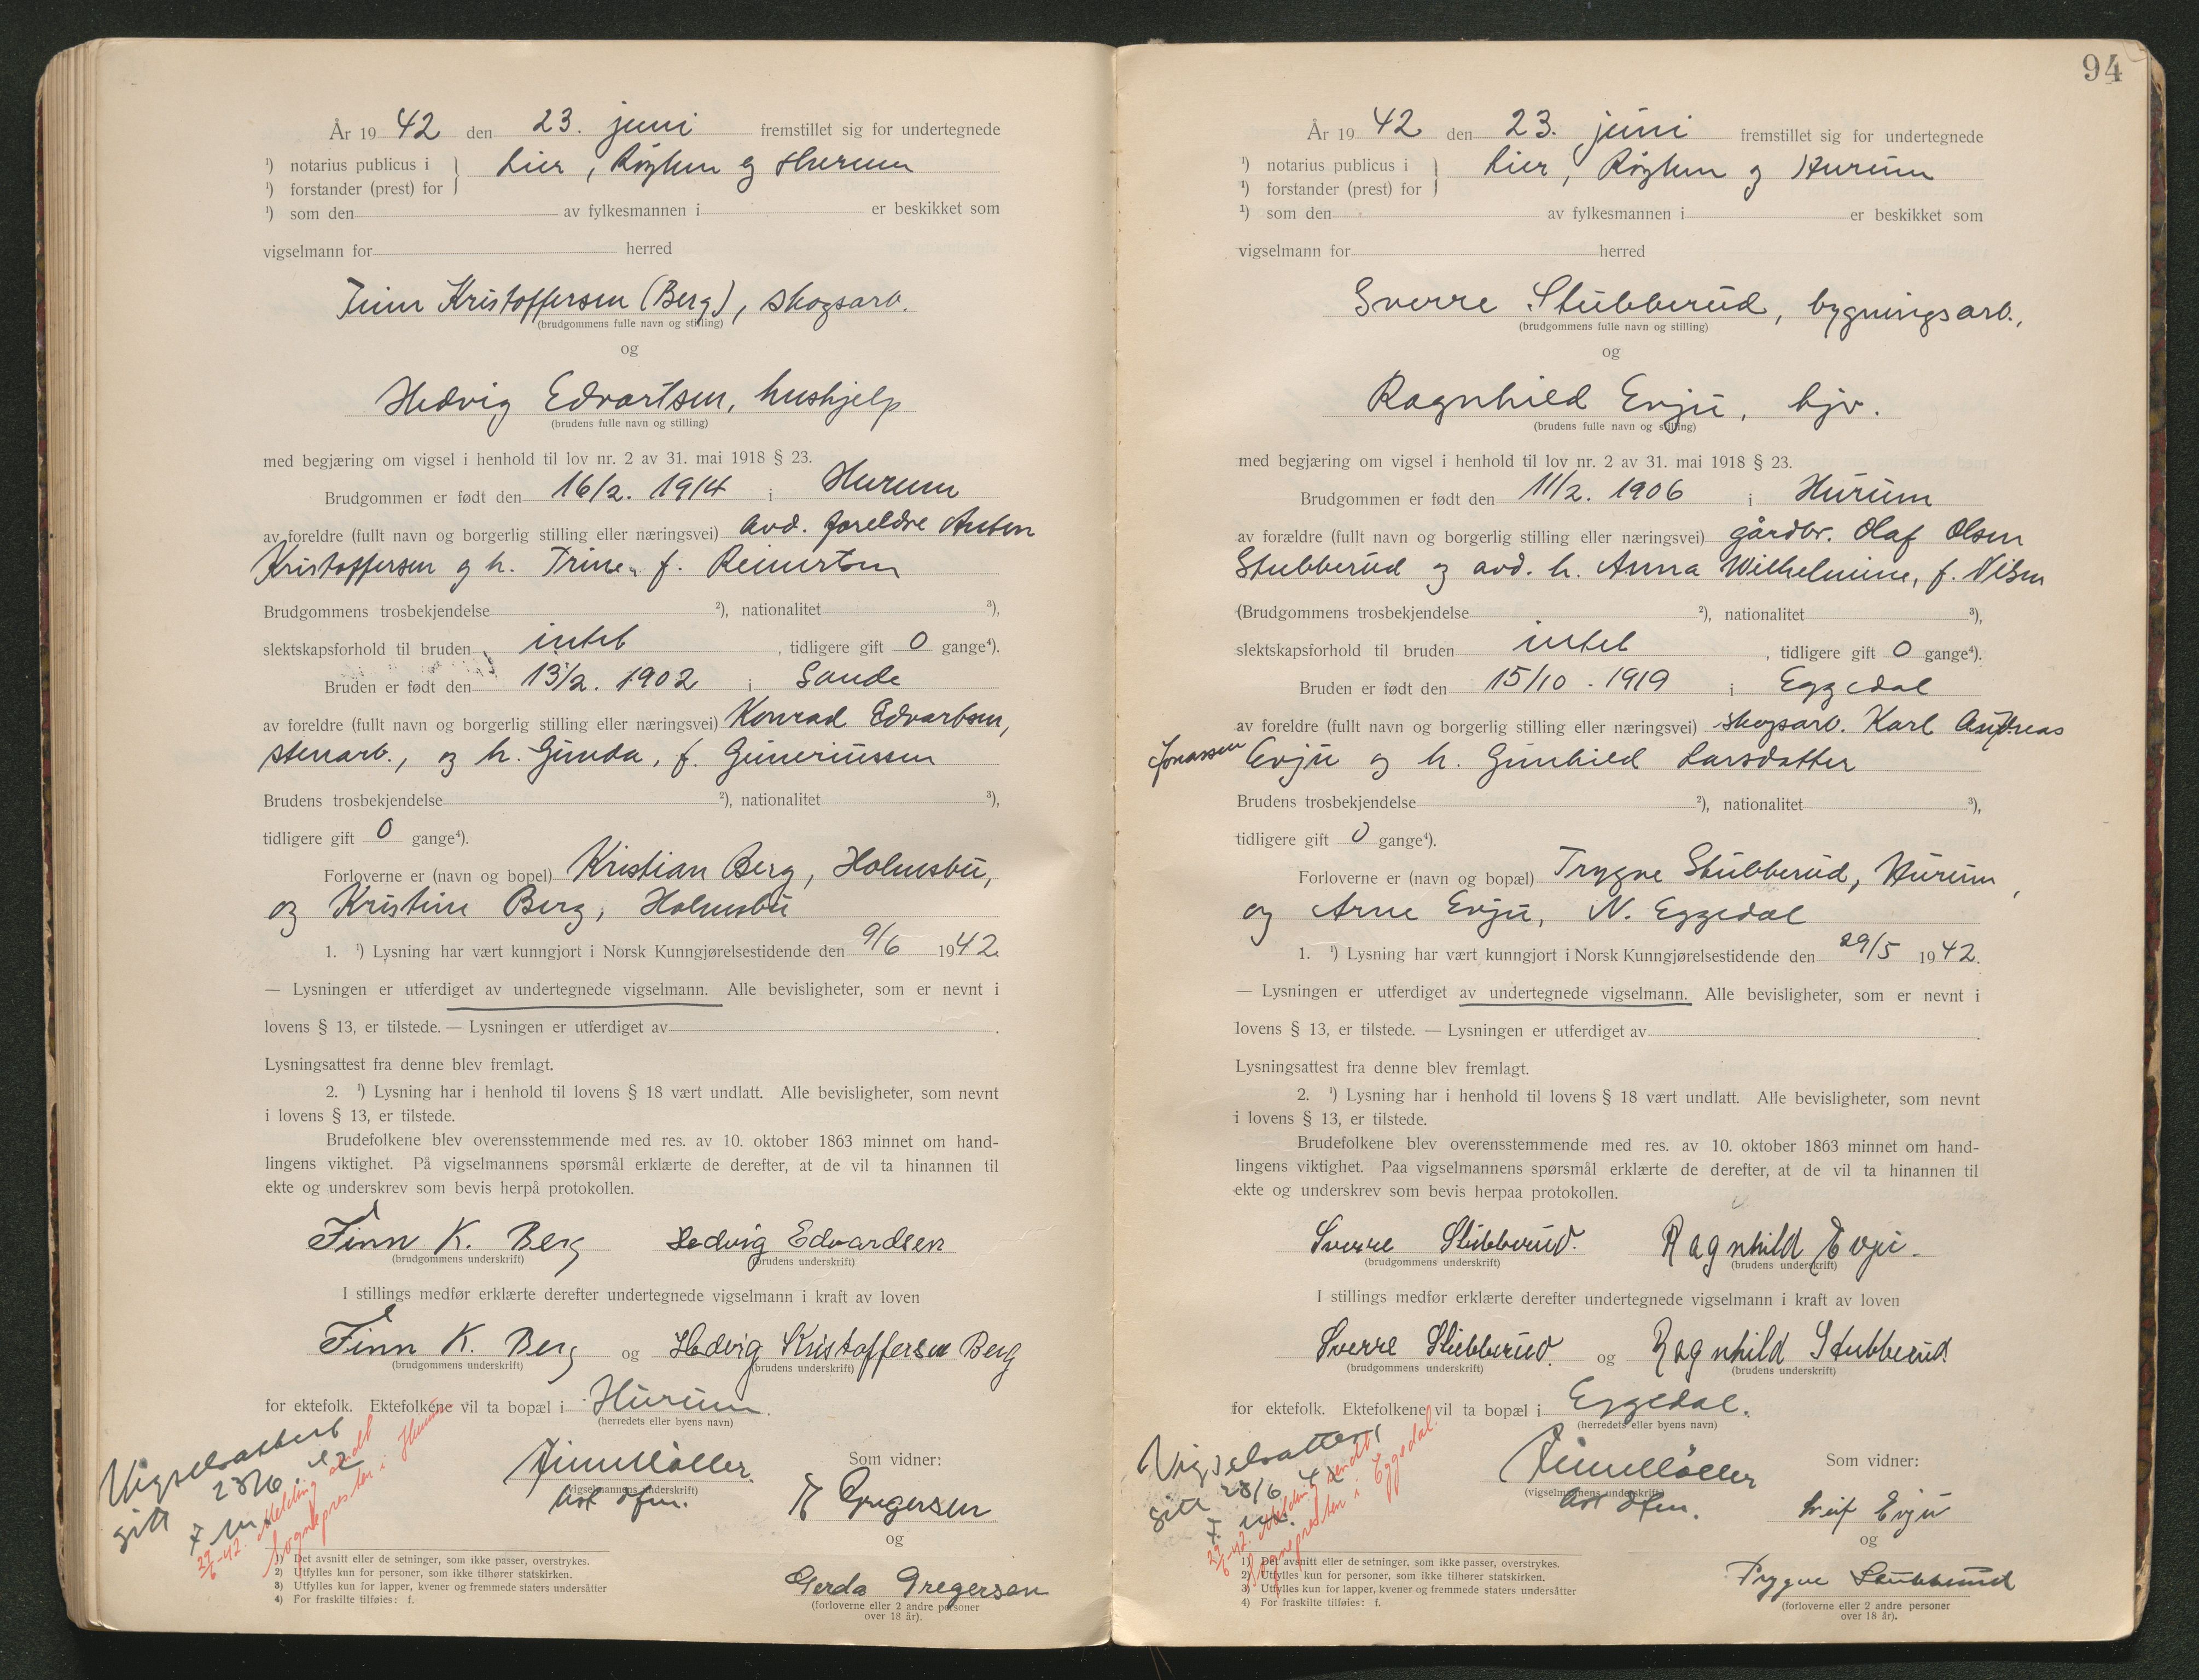 År 1942 den 23. juni fremstillet sig for undertegnede
¹) notarius publicus i } Lier, Røyken og Hurum
¹) forstander (prest) for
¹) som den av fylkesmannen i er beskikket som
vigselmann for herred
Finn Kristoffersen (Berg), skogsarb.
(brudgommens fulle navn og stilling)
og
Hedvig Edvartsen, hushjelp
(brudens fulle navn og stilling)
med begjæring om vigsel i henhold til lov nr. 2 av 31. mai 1918 § 23.
Brudgommen er født den 16/2. 1914 i Hurum
av foreldre (fullt navn og borgerlig stilling eller næringsvei) avd. foreldre Anton
Kristoffersen og h. Trine, f. Reinertsen
Brudgommens trosbekjendelse ²), nationalitet ³),
slektskapsforhold til bruden intet, tidligere gift 0 gange⁴).
Bruden er født den 13/2. 1902 i Sande
av foreldre (fullt navn og borgerlig stilling eller næringsvei) Konrad Edvartsen,
stenarb., og h. Gunda, f. Guneriussen
Brudens trosbekjendelse ²), nationalitet ³),
tidligere gift 0 gange⁴).
Forloverne er (navn og bopel) Kristian Berg, Holmsbu,
og Kristine Berg, Holmsbu
1. ¹) Lysning har vært kunngjort i Norsk Kunngjørelsestidende den 9/6 1942.
— Lysningen er utferdiget av undertegnede vigselmann. Alle bevisligheter, som er nevnt i
lovens § 13, er tilstede. — Lysningen er utferdiget av .
Lysningsattest fra denne blev fremlagt.
2. ¹) Lysning har i henhold til lovens § 18 vært undlatt. Alle bevisligheter, som nevnt
i lovens § 13, er tilstede.
Brudefolkene blev overensstemmende med res. av 10. oktober 1863 minnet om hand-
lingens viktighet. På vigselmannens spørsmål erklærte de derefter, at de vil ta hinannen til
ekte og underskrev som bevis herpå protokollen.
Finn K. Berg Hedvig Edvardsen
(brudgommens underskrift) (brudens underskrift)
I stillings medfør erklærte derefter undertegnede vigselmann i kraft av loven
Finn K. Berg og Hedvig Kristoffersen Berg
(brudgommens underskrift) (brudens underskrift)
for ektefolk. Ektefolkene vil ta bopæl i Hurum.
(herredets eller byens navn)
Vigselsattest
gitt 23/6. 42
29/6-42. Melding sendt
Sognepresten i Hurum
Finn Møller
(vigselmannens underskrift)
Som vidner:
Gregersen
og
Gerda Gregersen
(forloverne eller 2 andre personer
over 18 år).
1) Det avsnitt eller de setninger, som ikke passer, overstrykes.
2) Utfylles kun for personer, som ikke tilhører statskirken.
3) Utfylles kun for lapper, kvener og fremmede staters undersåtter
4) For fraskilte tilføies: f.
94
År 1942 den 23. juni fremstillet sig for undertegnede
¹) notarius publicus i } Lier, Røyken og Hurum
¹) forstander (prest) for
¹) som den av fylkesmannen i er beskikket som
vigselmann for herred
Sverre Stubberud, bygningsarb.,
(brudgommens fulle navn og stilling)
og
Ragnhild Evju, hjv.
(brudens fulle navn og stilling)
med begjæring om vigsel i henhold til lov nr. 2 av 31. mai 1918 § 23.
Brudgommen er født den 11/2. 1906 i Hurum
av forældre (fullt navn og borgerlig stilling eller næringsvei) gårdbr. Olaf Olsen
Stubberud og avd. h. Anna Wilhelmine, f. Nilsen
(Brudgommens trosbekjendelse ²), nationalitet ³),
slektskapsforhold til bruden intet, tidligere gift 0 gange⁴).
Bruden er født den 15/10. 1919 i Eggedal
av foreldre (fullt navn og borgerlig stilling eller næringsvei) skogsarb. Karl Andreas
Jonassen Evju og h. Gunhild Larsdatter
Brudens trosbekjendelse ²), nationalitet ³),
tidligere gift 0 gange⁴).
Forloverne er (navn og bopæl) Trygve Stubberud, Hurum,
og Arne Evju, N. Eggedal
1. ¹) Lysning har vært kunngjort i Norsk Kunngjørelsestidende den 29/5 1942.
— Lysningen er utferdiget av undertegnede vigselmann. Alle bevisligheter, som er nevnt i
lovens § 13, er tilstede. — Lysningen er utferdiget av .
Lysningsattest fra denne blev fremlagt.
2. ¹) Lysning har i henhold til lovens § 18 vært undlatt. Alle bevisligheter, som nevnt
i lovens § 13, er tilstede.
Brudefolkene blev overensstemmende med res. av 10. oktober 1863 minnet om hand-
lingens viktighet. Paa vigselmannens spørsmål erklærte de derefter, at de vil ta hinannen til
ekte og underskrev som bevis herpaa protokollen.
Sverre Stubberud. Ragnhild Evju.
(brudgommens underskrift) (brudens underskrift)
I stillings medfør erklærte derefter undertegnede vigselmann i kraft av loven
Sverre Stubberud. og Ragnhild Stubberud.
(brudgommens underskrift) (brudens underskrift)
for ektefolk. Ektefolkene vil ta bopæl i Eggedal.
(herredets eller byens navn)
Vigselsattest
gitt 23/6 42
29/6-42. Melding sendt
Sognepresten i Eggedal.
Finn Møller
(vigselmannens underskrift)
Som vidner:
Leif Evju
og
Trygve Stubberud
(forloverne eller 2 andre personer
over 18 år).
1) Det avsnitt eller de setninger, som ikke passer, overstrykes.
2) Utfylles kun for personer, som ikke tilhører statskirken.
3) Utfylles kun for lapper, kvener og fremmede staters undersåtter
4) For fraskilte tilføies: f.